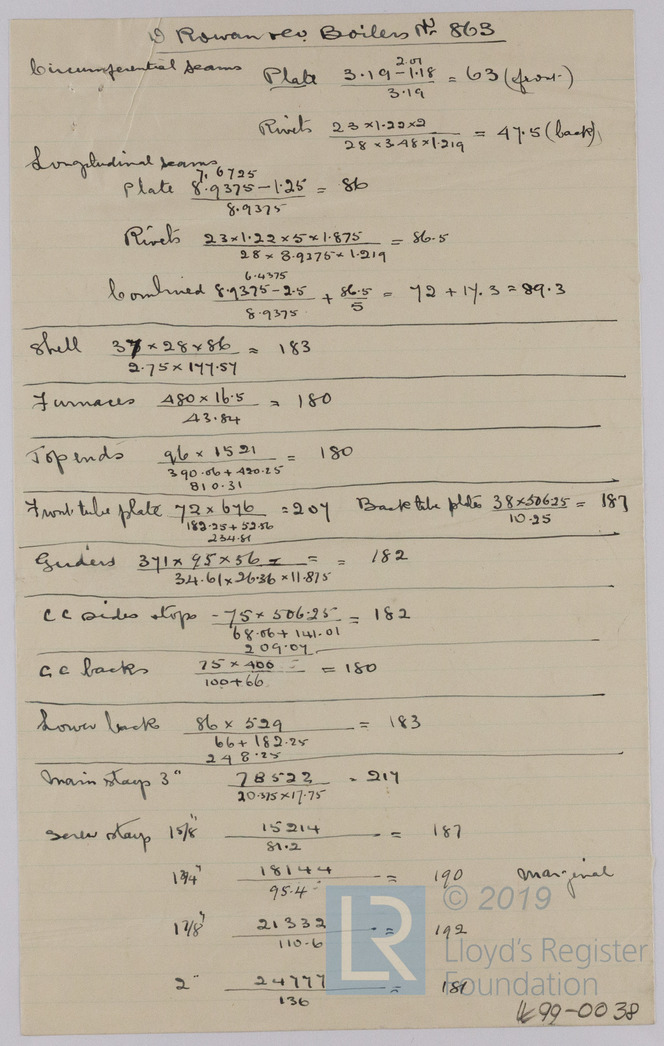 D Rowan & Co. Boilers No 863
Circumferential seams
2.01
Plate 3.19 - 1.18 / 3.19 = 63 (front)
Rivets 23 x 1.22 x 2 / 28 x 3.48 x 1.219 = 47.5 (back)
Longitudinal seams
7.6725
Plate 8.9375 - 1.25 / 8.9375 = 86
Rivets 23 x 1.22 x 5 x 1.875 / 28 x 8.9375 x 1.219 = 86.5
6.4375
Combined 8.9375 - 2.5 / 8.9375 + 86.5 / 5 = 72 + 17.3 = 89.3
Shell 37 x 28 x 86 / 2.75 x 177.57 = 183
Furnaces 480 x 16.5 / 43.84 = 180
Top ends 96 x 1521 / 390.06 + 420.25 = 180
810.31
Front tube plate 72 x 676 / 182.25 + 52.56 = 207 Back tube plate 38 x 506.25 / 10.25 = 187
234.81
Girders 371 x 95 x 56 / 34.61 x 26.36 x 11.875 = = 182
CC sides stops - 75 x 506.25 / 68.06 + 141.01 = 182
209.07
CC backs 75 x 400 / 100 + 66 = 180
Lower back 86 x 529 / 66 + 182.25 = 183
248.25
Main stays 3" 78522 / 20.375 x 17.75 = 217
Screw stays 1 5/8" 15214 / 81.2 = 187
1 3/4" 18144 / 95.4 = 190 Marginal
1 7/8" 21332 / 110.6 = 192
2" 24777 / 136 = 181
LR
© 2019
Lloyd's Register
Foundation
W99-0038